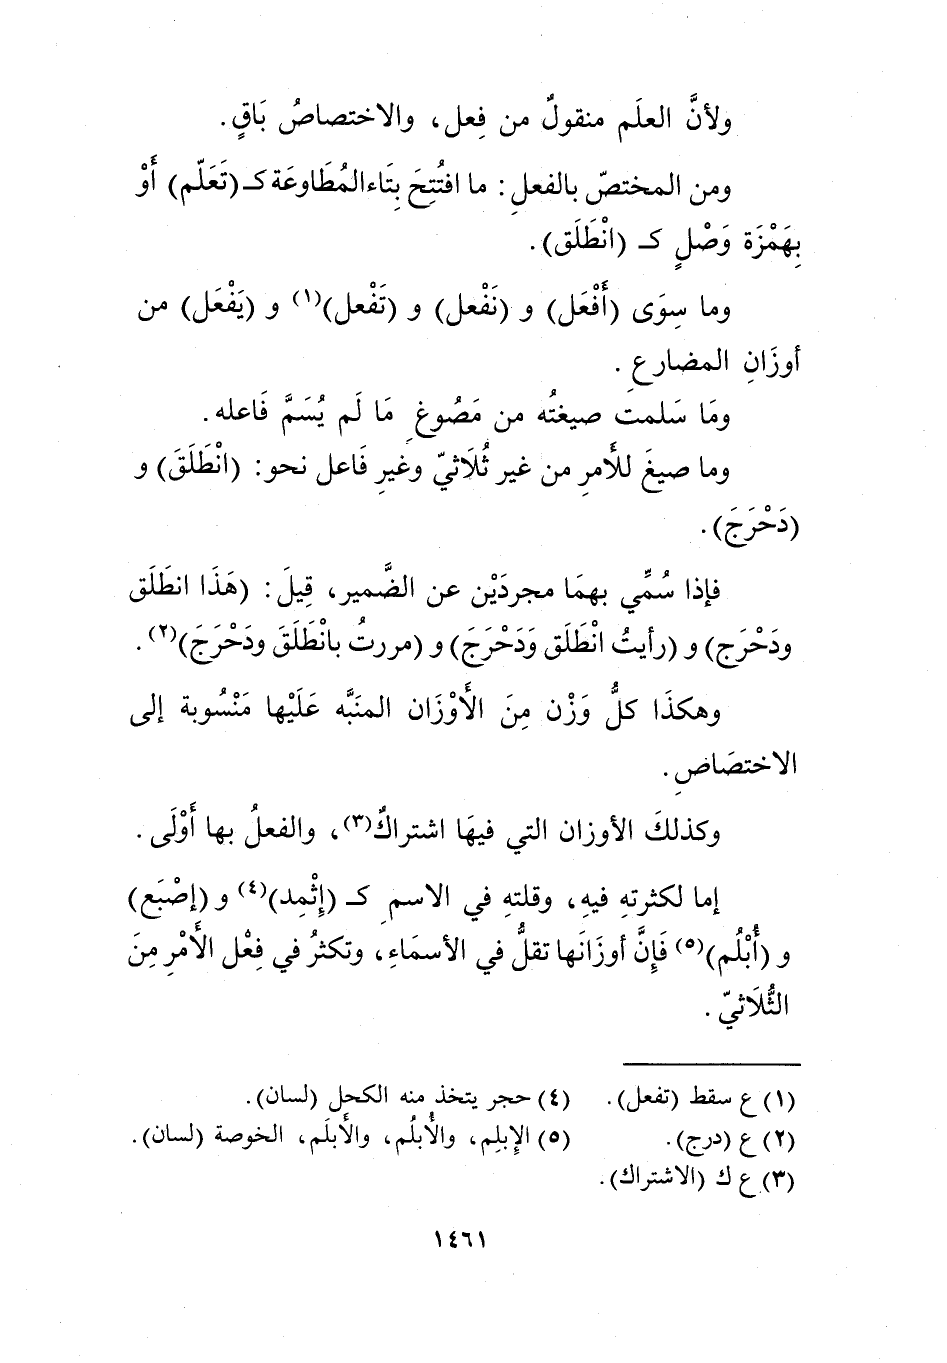 ولأنَّ العلَم منقولٌ من فِعل، والاختصاصُ بَاقٍ.
ومن المختصّ بالفعلِ: ما افتُتِحَ بِتَاءالمُطَاوعَة كـ (تَعَلّم) أَوْ
بِهَمْزَة وَصْلٍ كـ (انْطَلَق).
وما سِوَى (أَفْعَل) و (نَفْعل) و (تَفْعل)(١) و (يَفْعَل) من
أوزَانِ المضارعِ.
ومَا سَلمت صيغتُه من مَصُوغِ مَا لَم يُسَمَّ فَاعله.
وما صيغَ للأَمرِ من غير ثُلَاثيّ وغيرِ فَاعل نحو: (انْطَلَقَ) و
(دَحْرَجَ).
فإذا سُمِّي بهمَا مجردَيْن عن الضَّمير، قِيلَ: (هَذَا انطَلَق
ودَحْرَج) و (رأيتُ انْطَلَق وَدَحْرَجَ) و (مررتُ بانْطَلَقَ ودَحْرَجَ)(٢).
وهكذَا كلُّ وَزْن مِنَ الأَوْزَان المنَبَّه عَلَيْها مَنْسُوبة إلى
الاختصَاصِ.
وكذلكَ الأوزان التي فيهَا اشتراكٌ(٣)، والفعلُ بها أَوْلَى.
إما لكثرتهِ فيهِ، وقلتهِ في الاسمِ كـ (إِثْمِد)(٤) و (إصْبَع)
و (أُبْلُم)(٥) فَإِنَّ أوزَانَها تقلُّ في الأسمَاءِ، وتكثرُ في فِعْل الأَمْرِ مِنَ
الثُّلَاثيّ.
(١) ع سقط (تفعل).
(٢) ع (درج).
(٣) ع ك (الاشتراك).
(٤) حجر يتخذ منه الكحل (لسان).
(٥) الإبلِم، والأُبلُم، والأَبلَم، الخوصة (لسان).
١٤٦١